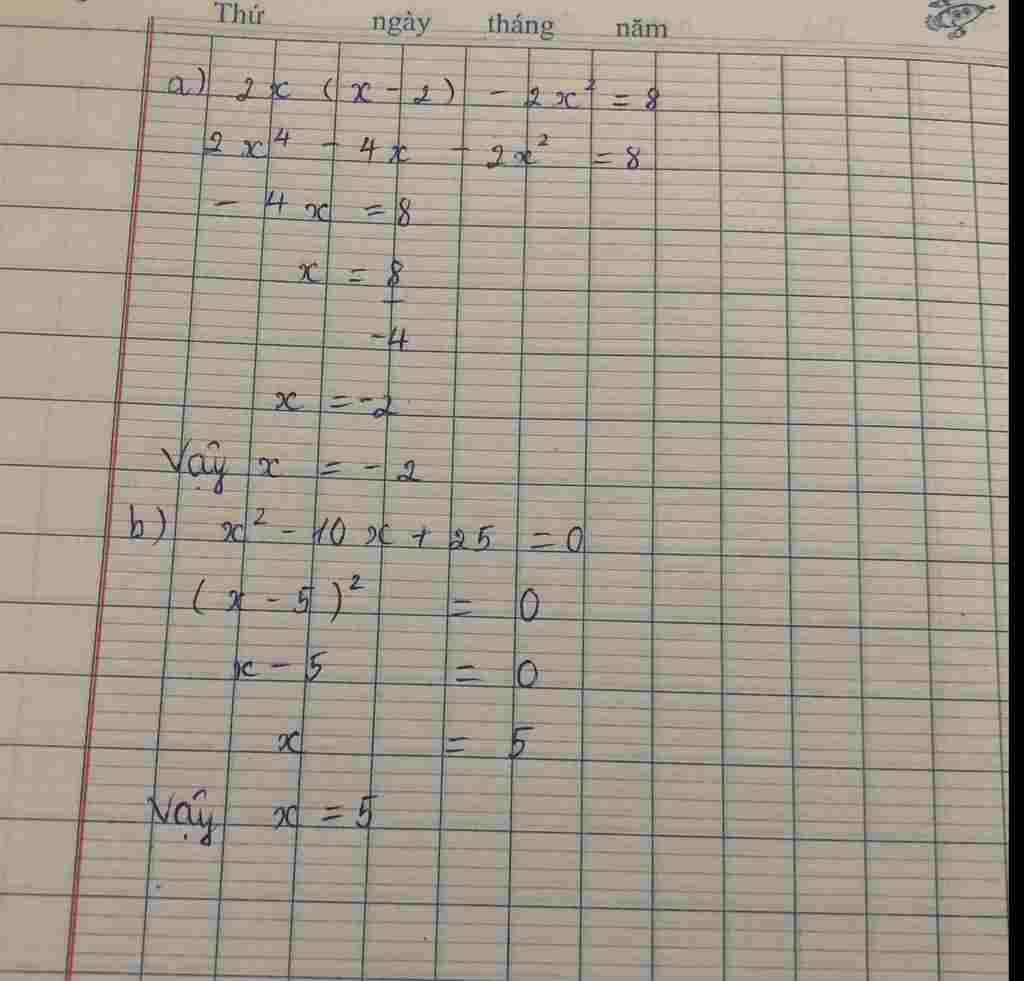 Thứ ngày tháng năm
a) 2x (x - 2) - 2x² = 8
2x⁴ - 4x - 2x² = 8
- 4x = 8
x = 8
-4
x = -2
Vậy x = - 2
b) x² - 10x + 25 = 0
(x - 5)² = 0
x - 5 = 0
x = 5
Vậy x = 5